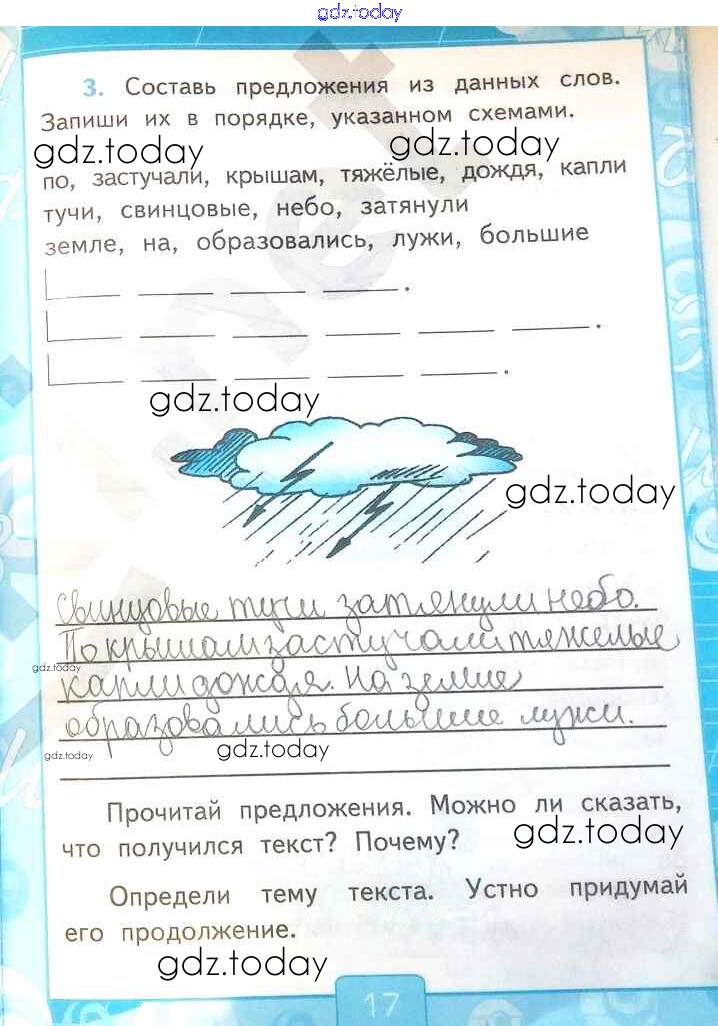 gdz.today
3. Составь предложения из данных слов.
Запиши их в порядке, указанном схемами.
gdz.today gdz.today
по, застучали, крышам, тяжёлые, дождя, капли
тучи, свинцовые, небо, затянули
земле, на, образовались, лужи, большие
gdz.today
gdz.today
Свинцовые тучи затянули небо.
По крышам застучали тяжелые
gdz.today
капли дождя. На земле
образовались большие лужи.
gdz.today gdz.today
Прочитай предложения. Можно ли сказать,
что получился текст? Почему?
gdz.today
Определи тему текста. Устно придумай
его продолжение.
gdz.today
17